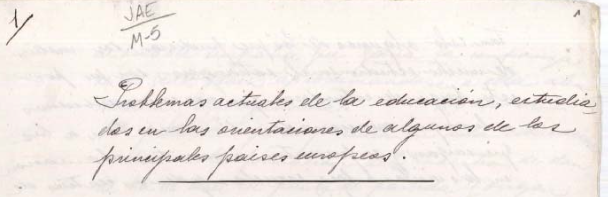 1/
JAE
M-5
Problemas actuales de la educación, estudia-
dos en las orientaciones de algunos de los
principales paises europeos.